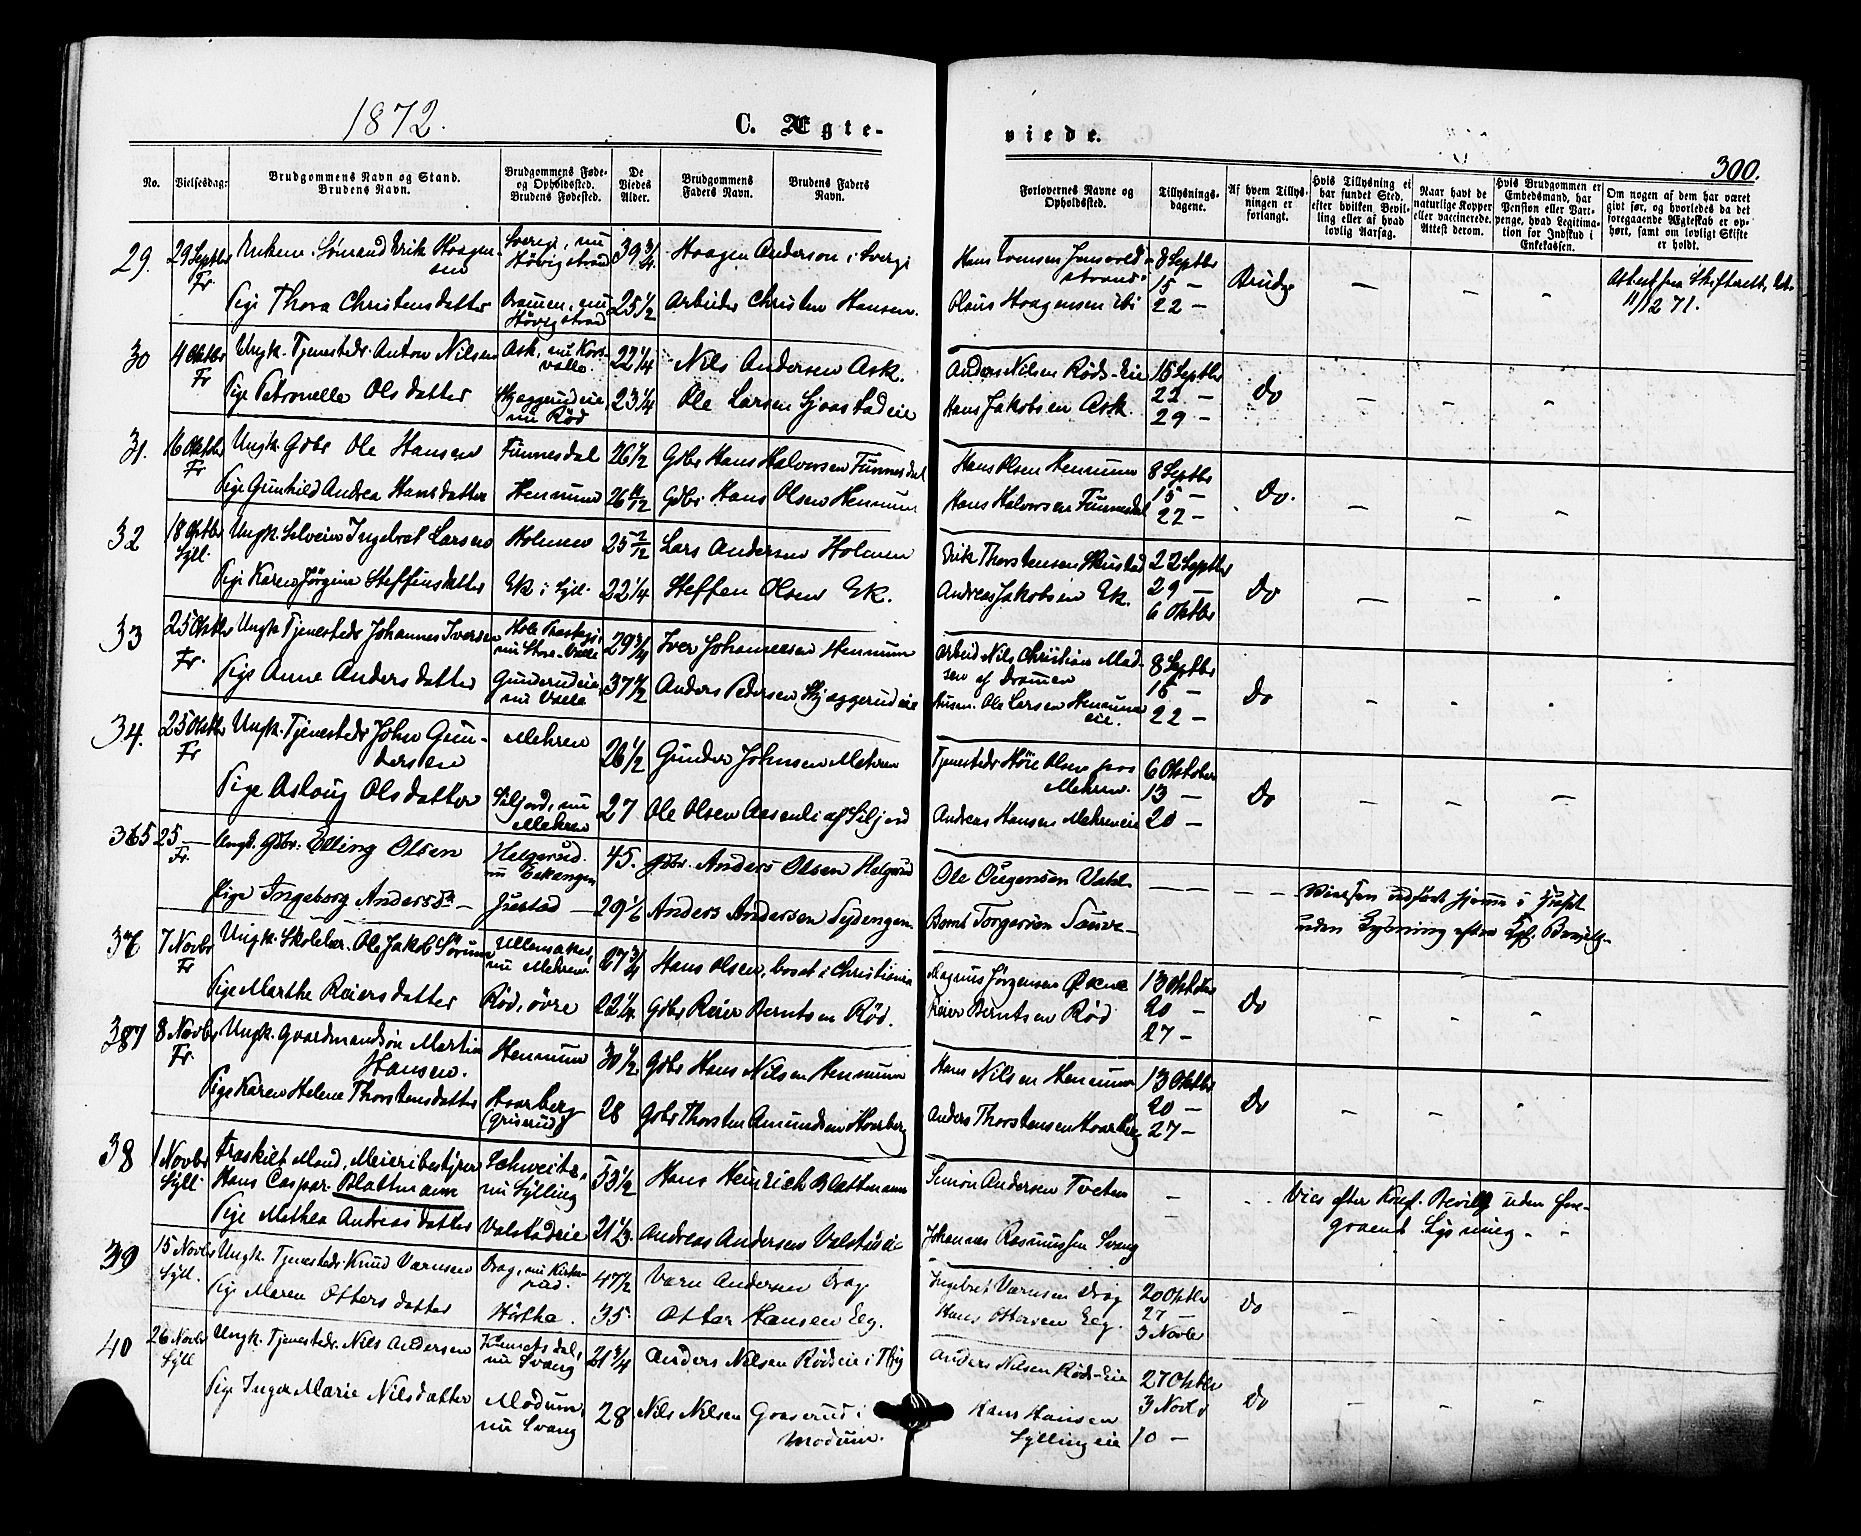 1872.
C. Ægte-
viede.
300.
No.
Vielsesdag:
Brudgommens Navn og Stand.
Brudens Navn.
Brudgommens Føde-
og Opholdsted.
Brudens Fødested.
De
Viedes
Alder.
Brudgommens
Faders Navn.
Brudens Faders
Navn.
Forlovernes Navne og
Opholdsted.
Tillysnings-
dagene.
Af hvem Tillys-
ningen er
forlangt.
Hvis Tillysning ei
har fundet Sted,
efter hvilken Bevil-
ling eller af hvad
lovlig Aarsag.
Naar havt de
naturlige Kopper
eller vaccinerede.
Attest derom.
Hvis Brudgommen er
Embedsmand, har
Pension eller Vart-
penge, hvad Legitima-
tion for Indskud i
Enkekassen.
Om nogen af dem har været
givt før, og hvorledes da det
foregaaende Ægteskab er op-
hørt, samt om lovligt Skifte
er holdt.
29. 29 Septbr Enkem. Sømand Erik Haagen- Sverige, nu 39 3/4 Haagen Anderson i Sverige Hans 8 Septbr
Fr. sen Høvigstrand 15 — Brudg. — — — 11/12 71.
Pige Thora Christensdatter Dramen, nu 25 1/2 Arbeider Christen Hansen. Olaus Haagensen 22 —
Høvigstrand
30 4 Oktbr Ungk. Tjenestedr. Anton Nilsen Ask, nu Kors- 22 1/4 Nils Andersen Ask. Anders Nilsen Røds-Eie 15 Septbr
Fr valle 22 — Do — — —
Pige Petronelle Olsdatter Skjaggerudeie, 23 1/4 Ole Larsen Sjaastadeie Hans Jakobsen Ask. 29 —
nu Rød
31. 16 Oktbr Ungk. Gdbr Ole Hansen Finnesdal 26 1/2 Gdbr Hans Halvorsen Finnesdal Hans Olsen Hennum 8 Septbr
Fr 15 — Do. — — —
Pige Gunhild Andrea Hansdatter Hennum 26 11/12 Gdbr. Hans Olsen Hennum Hans Halvorsen Finnesdal 22 —
32 18 Oktbr Ungk. Selveier Ingebret Larsen Holmen 25 7/12 Lars Andersen Holmen Erik Thorstensen 22 Septbr
Syll. 29 — Do — — —
Pige Karen Jørgine Steffensdatter Ek i Syll. 22 1/4 Steffen Olsen Ek. Andreas Jakobsen Ek. 6 Oktbr
33 25 Oktbr Ungk. Tjenestedr Johannes Iversen Hole Prestegj, 29 3/4 Iver Johannesen Hennum Arbeid Nils Christian Mad- 8 Septbr
Fr. nu Store-Valle sen af Dramen 15 — Do — — —
Pige Anne Andersdatter Gunderudeie 37 1/2 Anders Pedersen Skjaggerudeie Husm. Ole Larsen Hennum 22 —
nu Valle eie.
34. 25 Oktbr Ungk. Tjenestedr John Gun- Mehren 26 1/2 Gunder Johnsen Mehren Tjenestedr Olsen hos 6 Oktober
Fr dersen Mehren. 13 — Do — — —
Pige Aslaug Olsdatter Siljord, nu 27 Ole Olsen Aasenli af Siljord Andreas Hansen Mehreneie 20 —
Mehren
365 25 — Ungk. Gdbr. Elling Olsen Helgerud 45. Gdbr. Anders Olsen Helgerud Ole — — — — Vielsen udført hjemme i
Fr. nu uden Lysning efter Kgl. Bevilg.
Pige Ingeborg Andersdr — Justad — 29 1/2 Anders Andersen Bernt Torgersen
37 7 Novbr Ungk. Skolelær. Ole Jakob Sørum Ullensaker, 27 3/4 Hans Olsen, bosat i Christiania Magnus Jørgensen 13 Oktober
Fr nu Mehren 20 — Do — — —
Pige Marthe Reiersdatter Rød, øvre 22 1/4 Gdbr Reier Berntsen Rød. Reier Berntsen Rød 27 —
387 8 Novbr Ungk. Gaardmandsøn Martin Hennum 30 1/2 Gdbr Hans Nilsen Hennum Hans Nilsen Hennum 13 Oktbr
Fr. Hansen. 20 — Do — — —
Pige Karen Helene Thorstensdatter Haarberg 28 Gdbr Thorsten Amundsen Haarberg Anders Thorstensen Haarberg 27 —
(Griserud)
38 1 Novbr Fraskilt Mand, Meieribestyrer Schweits, 53 1/2 Hans Heinrich Blattmann Simon Andersen Tveten — — Vies efter Kongl. Bevilg uden fore-
Syll Hans Caspar Blattmann nu Sylling gaaende Lysning.
Pige Mathea Andreasdatter Valstadeie 21 1/2. Andreas Andersen Valstadeie Johannes Rasmussen Svang
39 15 Novbr Ungk. Tjenestedr. Knud Værnsen Drag, nu Kirke- 47 1/2 Værn Andersen Drag Ingebret Værnsen Drag 20 Oktbr
Syll. rud. 27 — Do —
Pige Maren Ottersdatter Hørthe. 35. Otter Hansen Eeg. Hans Ottersen Eeg. 3 Novbr
40 26 Novbr Ungk. Tjenestedr. Nils Andersen 21 3/4 Anders Nilsen Rødseie i Anders Nilsen Røds-Eie 27 Oktbr
Syll nu Svang 3 Novbr Do — — —
Pige Inger Marie Nilsdatter Modum, 28 Nils Nilsen Gaaserud i Hans Hansen 10 —
nu Svang Modum. Syllingeie